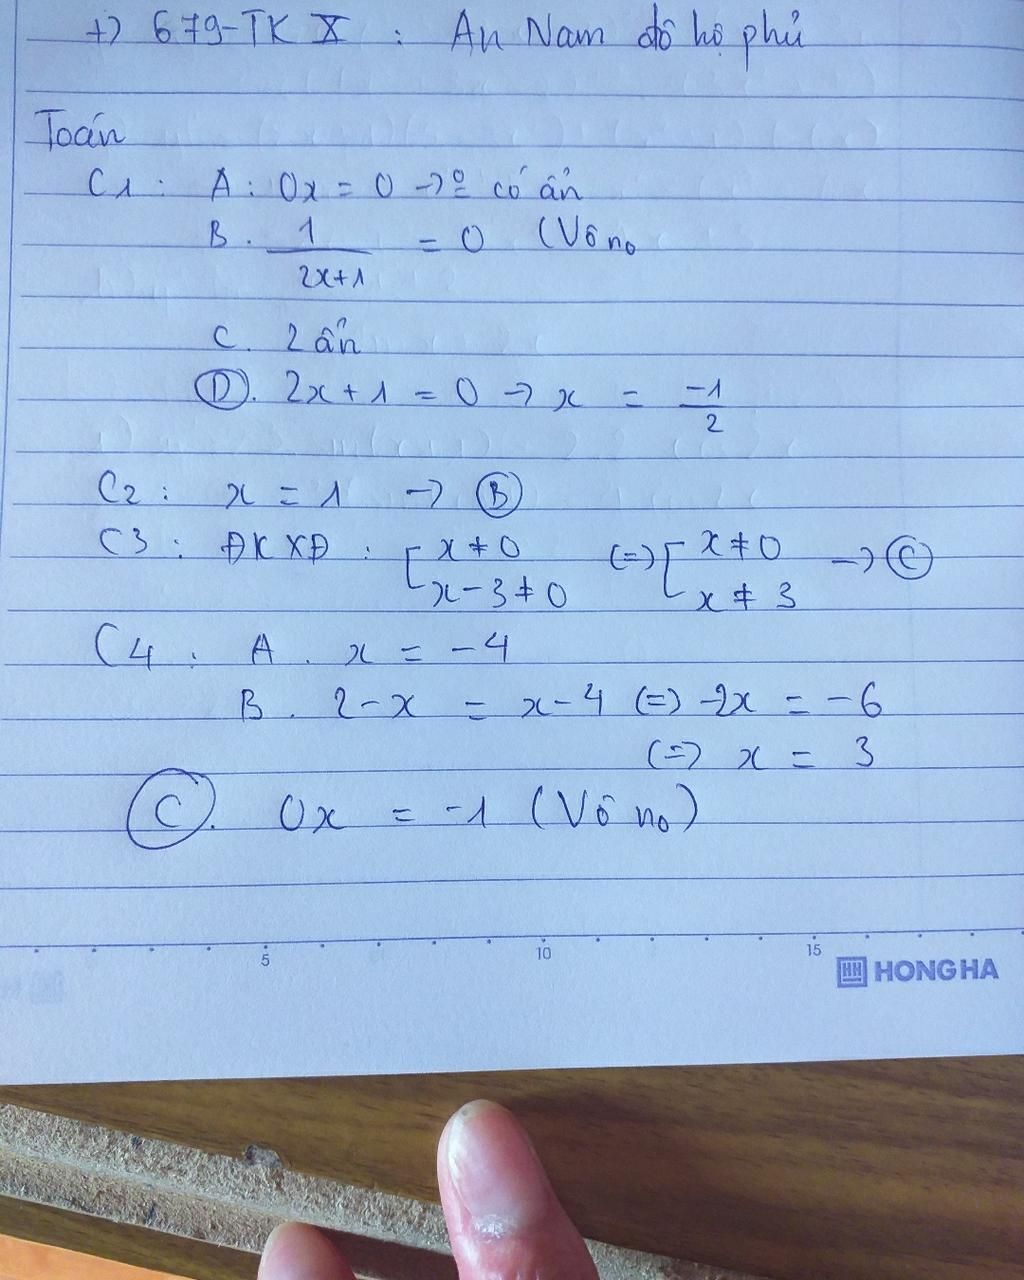 +) 679-TK X : An Nam đô hộ phủ
Toán
C1 : A : 0x = 0 → º có ẩn
B. 1/2x+1 = 0 (Vô no
C. 2 ẩn
D. 2x + 1 = 0 → x = -1/2
C2 : x = 1 → B
C3 : ĐKXĐ : [x ≠ 0 (=) [x ≠ 0 → C
x - 3 ≠ 0 x ≠ 3
C4 : A . x = -4
B . 2 - x = x - 4 (=) -2x = -6
(=) x = 3
C. 0x = -1 (Vô no)
5 10 15
HH HONG HA